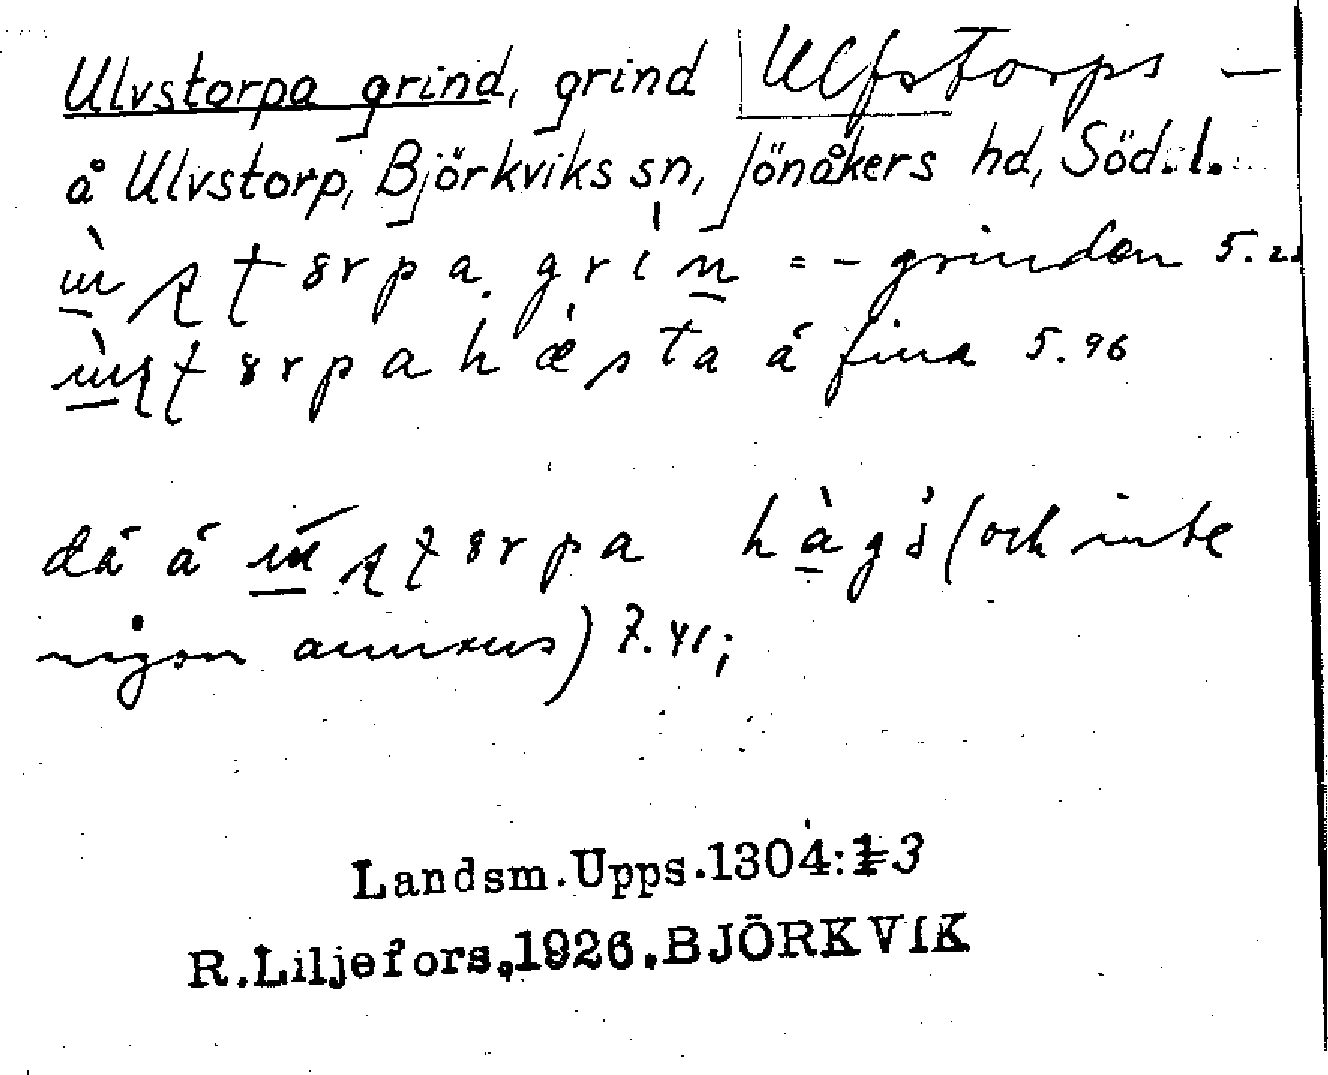 Ulvstorpa grind, grind Ulfstorps –
å Ulvstorp, Björkviks sn, Jönåkers hd, Söd.l.
grin = - grinden 5.2
hæsta á fina 5.96
dä á hàg (och inte
någon annans) 7.41;
Landsm.Upps.1304:1-3
R.Liljefors,1926.BJÖRKVIK